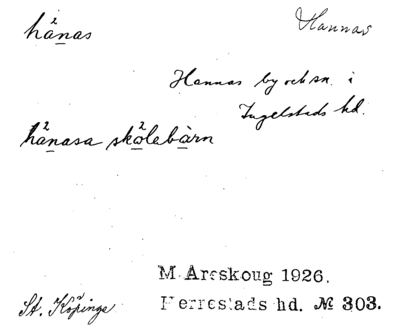 hånas
Hannas
Hannas by och sn. i
Ingelstads hd.
hånasa skolebàrn
M. Areskoug 1926.
St. Köpinge
Herrestads hd. № 303.